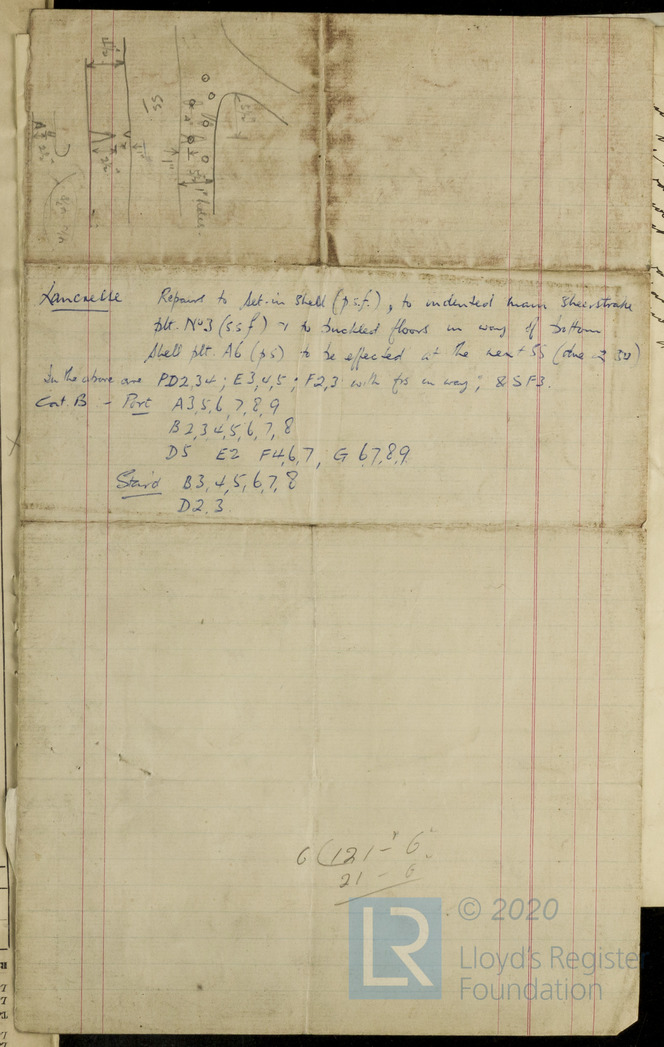 Lancrelle Repairs to set-in shell (p.s.f.), to indented main sheerstrake
plt. No 3 (s s f) & to buckled floors in way of bottom
shell plt. A6 (ps) to be effected at the next SS (due 2 30)
In the above are PD2,3,4; E3,4,5; F2,3 with frs in way; & SF3.
Cont. B - Port A3,5,6,7,8,9
B2,3,4,5,6,7,8
D5 E2 F4,6,7, G 6,7,8,9
Star'd B3,4,5,6,7,8
D2,3
6(121 - 6"
21 - 6"
LR
© 2020
Lloyd's Register
Foundation